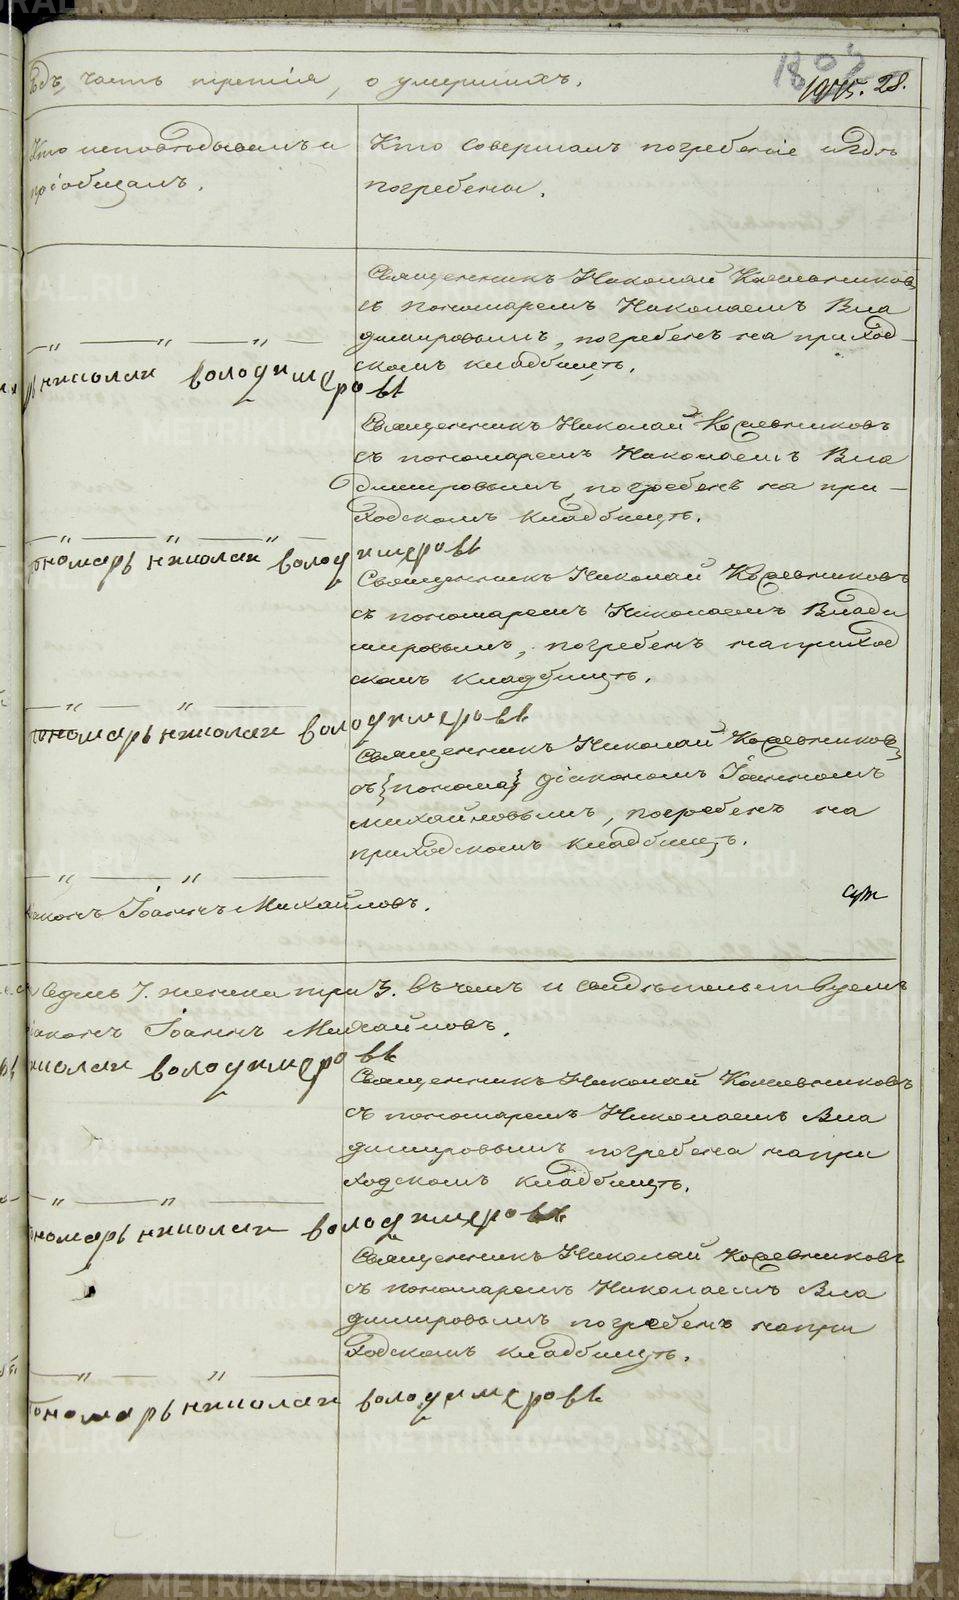 годъ, часть третія, о умершихъ.
28.
Кто исповѣдывалъ и
пріобщалъ.
Кто совершалъ погребеніе и гдѣ
погребены.
Священникъ Николай Кожевниковъ
съ пономаремъ Николаемъ Вла
димировымъ, погребенъ на приход-
скомъ кладбищѣ.
николаи володимеровъ
Священникъ Николай Кожевниковъ
съ пономаремъ Николаемъ Вла
димировымъ, погребенъ на при-
ходскомъ кладбищѣ.
пономарь николаи володимеровъ
Священникъ Николай Кожевниковъ
съ пономаремъ Николаемъ Влади
мировымъ, погребенъ на приход
скомъ кладбищѣ.
пономарь николаи володимеровъ
Священникъ Николай Кожевниковъ
съ {понома} діакономъ Іоанномъ
Михайловымъ, погребенъ на
приходскомъ кладбищѣ.
діаконъ Іоаннъ Михайловъ.
седмь 7. женска три 3. въ чемъ и свидѣтельствуемъ
діаконъ Іоаннъ Михайловъ.
николаи володимеровъ
Священникъ Николай Кожевниковъ
съ пономаремъ Николаемъ Вла
димировымъ погребена на при
ходскомъ кладбищѣ.
пономарь николаи володимеровъ
Священникъ Николай Кожевниковъ
съ пономаремъ Николаемъ Вла
димировымъ погребенъ на при
ходскомъ кладбищѣ.
пономарь николаи володимеровъ
METRIKI.GASO-URAL.RU